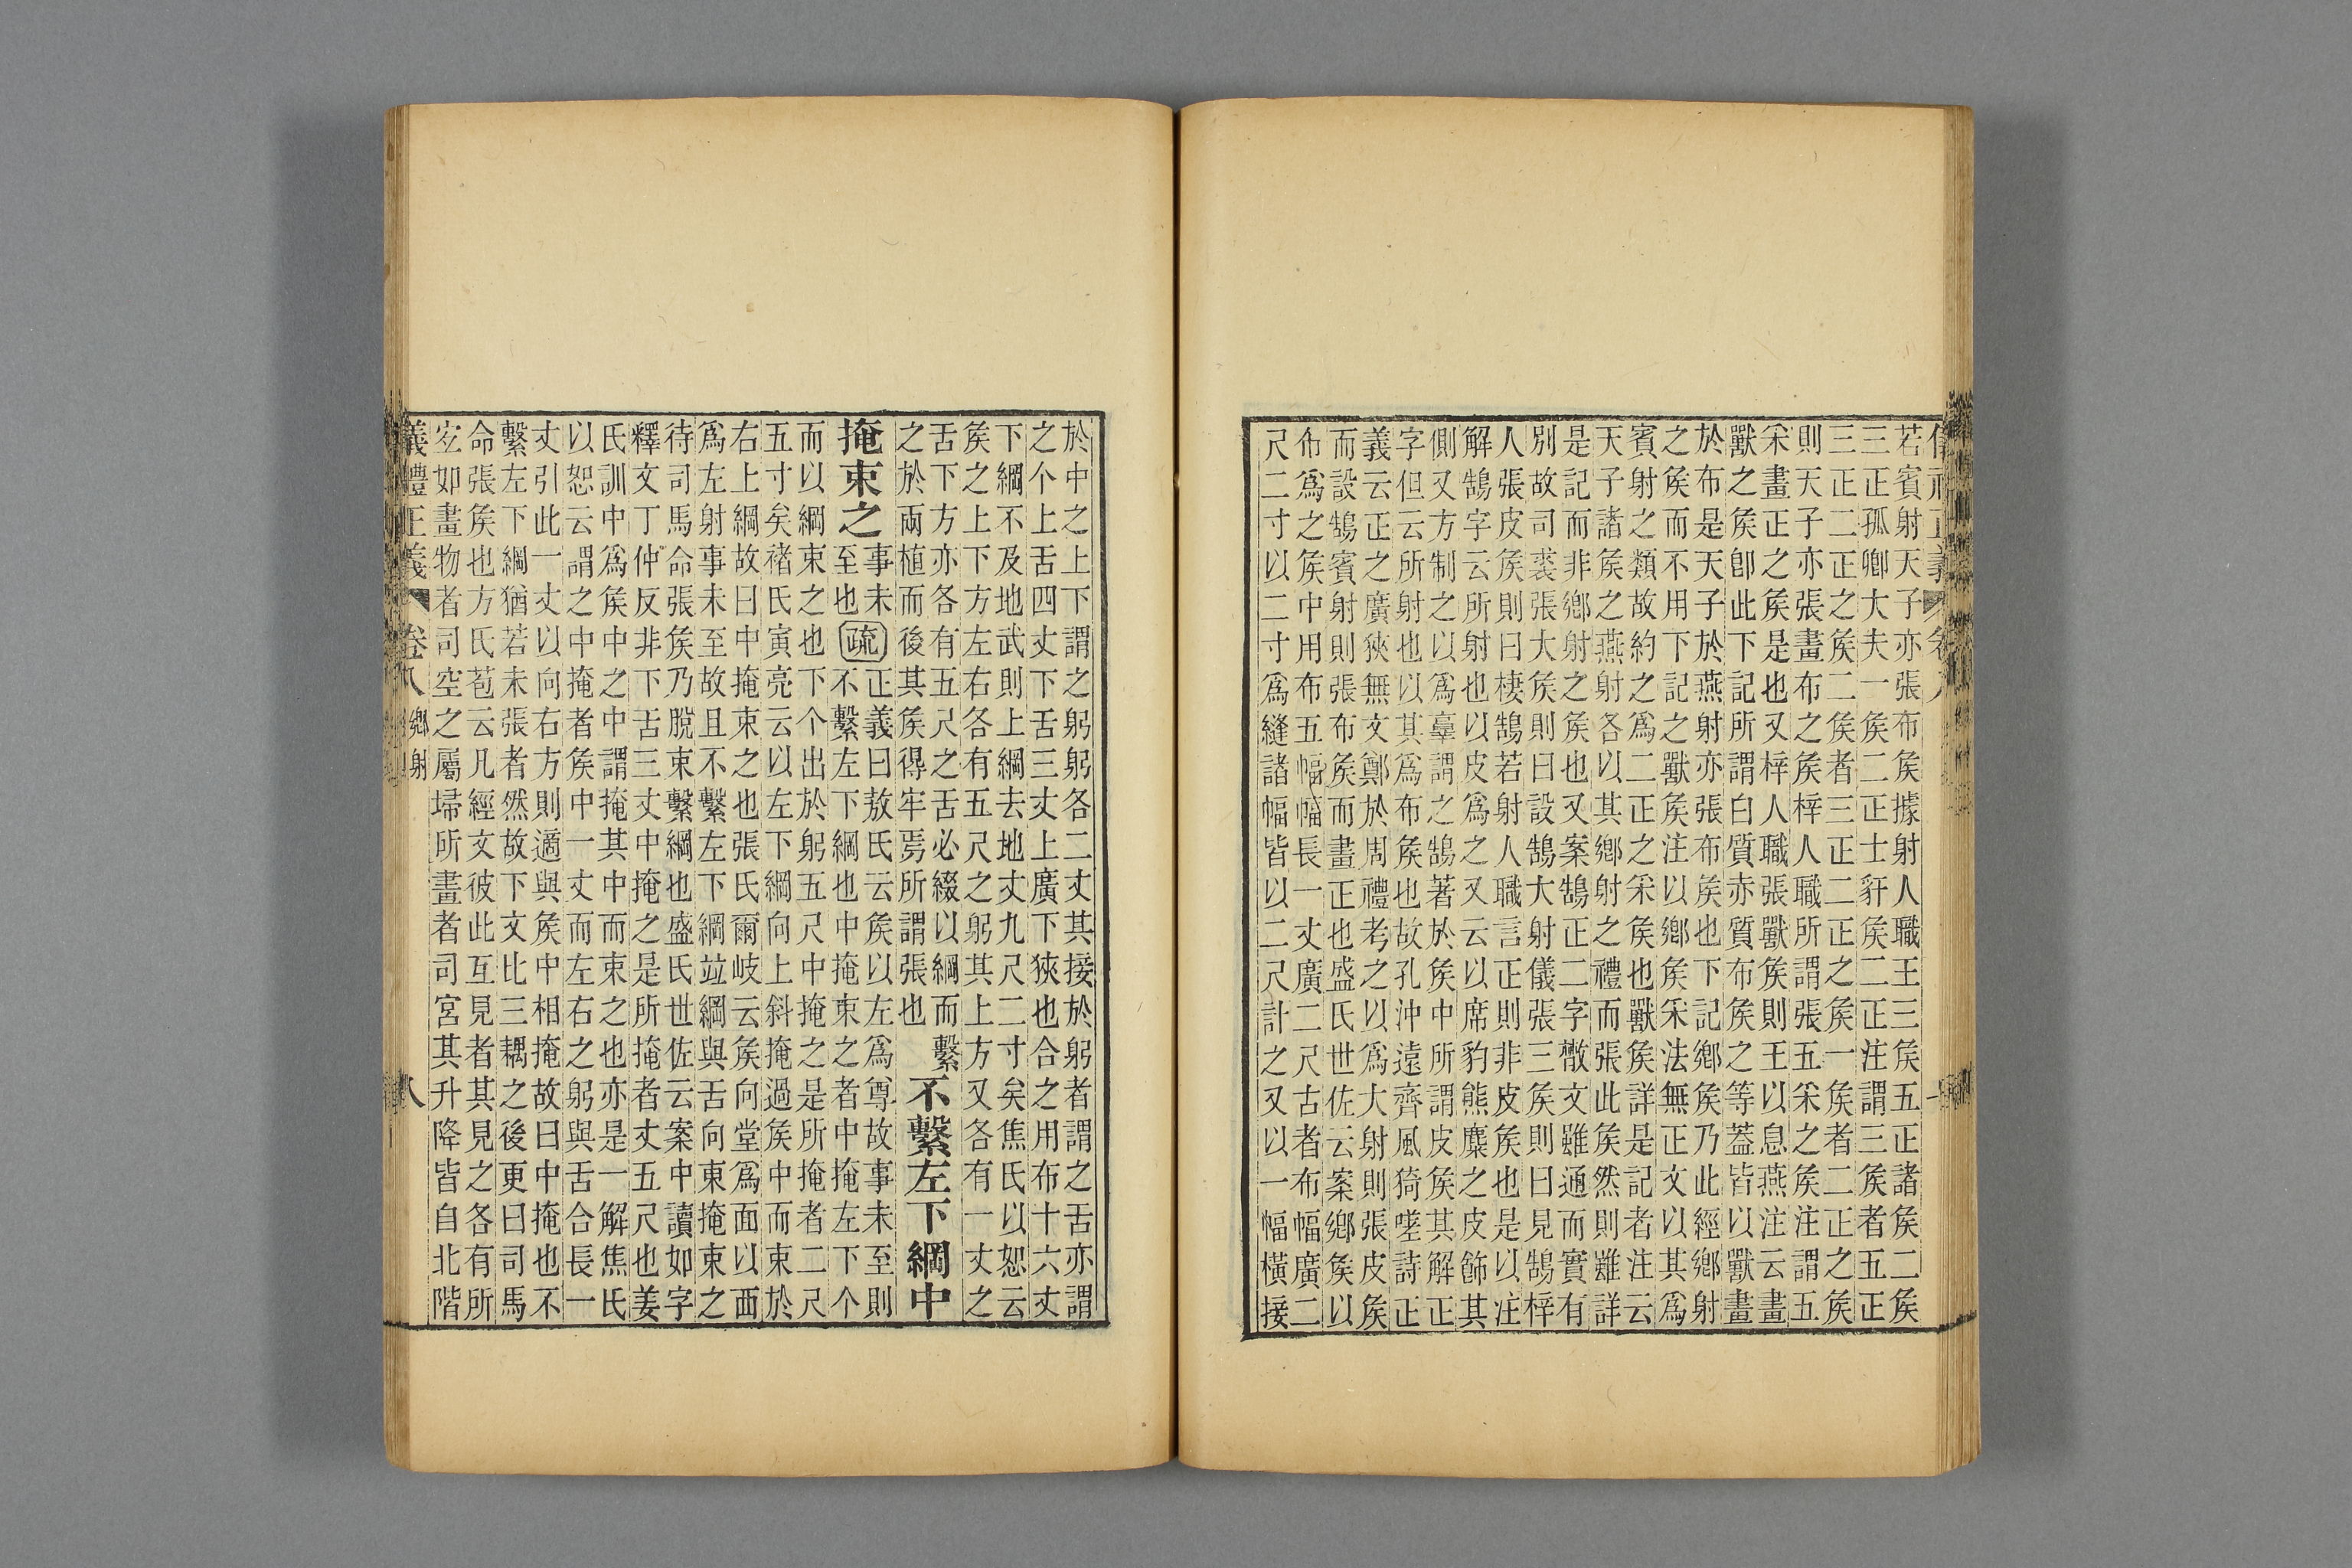 若賓射天子亦張布矦據射人職王三矦五正諸矦二矦
三正孤卿大夫一矦二正士豻矦二正注謂三矦者五正
三正二正之矦二矦者三正二正之矦一矦者二正之矦
則天子亦張畫布之矦梓人職所謂張五采之矦注謂五
采畫正之矦是也又梓人職張獸矦則王以息燕注云畫
獸之矦卽此下記所謂白質赤質布矦之等葢皆以獸畫
於布是天子於燕射亦張布矦也下記鄉矦乃此經鄉射
之矦而不用下記之獸矦注以鄉矦采法無正文以其爲
賓射之類故約之爲二正之采矦也獸矦詳是記者注云
天子諸矦之燕射各以其鄉射之禮而張此矦然則雖詳
是記而非鄉射之矦也又案鵠正二字㪚文雖通而實有
別故司裘張大矦則曰設鵠大射儀張三矦則曰見鵠梓
人張皮矦則曰棲鵠若射人職言正則非皮矦也是以注
解鵠字云所射也以皮爲之又云以席豹熊麋之皮飾其
側又方制之以爲𦤎謂之鵠著於矦中所謂皮矦其解正
字但云所射也以其爲布矦也故孔沖遠齊風猗嗟詩正
義云正之廣狹無文鄭於周禮考之以爲大射則張皮矦
而設鵠賓射則張布矦而畫正也盛氏世佐云案鄉矦以
布爲之矦中用布五幅幅長一丈廣二尺古者布幅廣二
尺二寸以二寸爲縫諸幅皆以二尺計之又以一幅橫接
於中之上下謂之躬躬各二丈其接於躬者謂之舌亦謂
之个上舌四丈下舌三丈上廣下狹也合之用布十六丈
下綱不及地武則上綱去地丈九尺二寸矣焦氏以恕云
矦之上下方左右各有五尺之躬其上方又各有一丈之
舌下方亦各有五尺之舌必綴以綱而繫
之於兩植而後其矦得牢焉所謂張也
不繫左下綱中
掩束之
事未
至也
疏
正義曰敖氏云矦以左爲尊故事未至則
不繫左下綱也中掩束之者中掩左下个
而以綱束之也下个出於躬五尺中掩之是所掩者二尺
五寸矣褚氏寅亮云以左下綱向上斜掩過矦中而束於
右上綱故曰中掩束之也張氏爾岐云矦向堂爲面以西
爲左射事未至故且不繫左下綱竝綱與舌向東掩束之
待司馬命張矦乃脫束繫綱也盛氏世佐云案中讀如字
釋文丁仲反非下舌三丈中掩之是所掩者丈五尺也姜
氏訓中爲矦中之中謂掩其中而束之也亦是一解焦氏
以恕云謂之中掩者矦中一丈而左右之躬與舌合長一
丈引此一丈以向右方則適與矦中相掩故曰中掩也不
繫左下綱猶若未張者然故下文比三耦之後更曰司馬
命張矦也方氏苞云凡經文彼此互見者其見之各有所
宐如畫物者司空之屬埽所畫者司宮其升降皆自北階
儀禮正義 卷八 鄉射 八